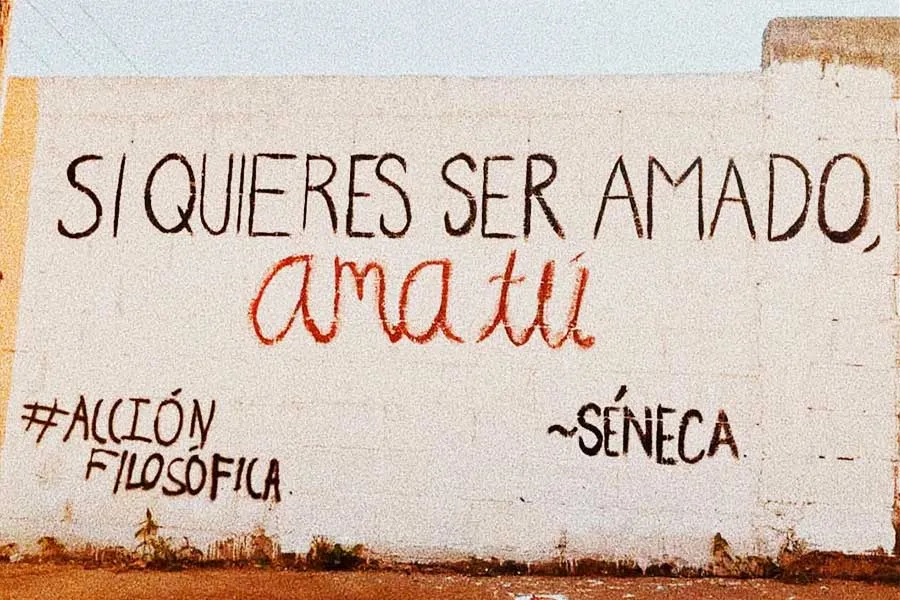 SI QUIERES SER AMADO,
ama tú
#ACCIÓN
FILOSÓFICA
~SÉNECA